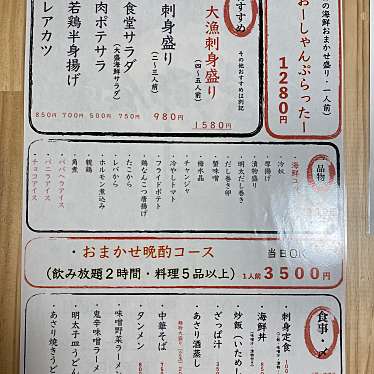 の海鮮おまかせ盛り・一人前)
おーしゃんぶらったー
1280円
すすめ
その他おすすめは別記
大漁刺身盛り
(四〜五人前)
1580円
刺身盛り
(二〜三人前)
980円
食堂サラダ
(大盛海鮮サラダ)
750円
肉ポテサラ
500円
若鶏半身揚げ
700円
レアカツ
850円
品物
・海鮮ユ
・冷奴
・厚揚げ
・漬物盛り
・明太だし巻き
・だし巻き卵
・蟹味噌
・梅水晶
・チャンジャ
・冷やしトマト
・フライドポテト
・鶏なんこつ唐揚げ
・たこから
・レバから
・ホルモン煮込み
・親鶏
・角煮
・ババヘラアイス
・バニラアイス
・チョコアイス
・おまかせ晩酌コース
当日OK
(飲み放題2時間・料理5品以上)
1人前3500円
食事・〆
・刺身定食
・海鮮丼
・炒飯(いため
・ざっぱ汁
・あさり酒蒸し
・中華そば
・タンメン
・味噌野菜ラーメ
・鬼辛味噌ラーメ
・明太子皿うどん
・あさり焼きうど